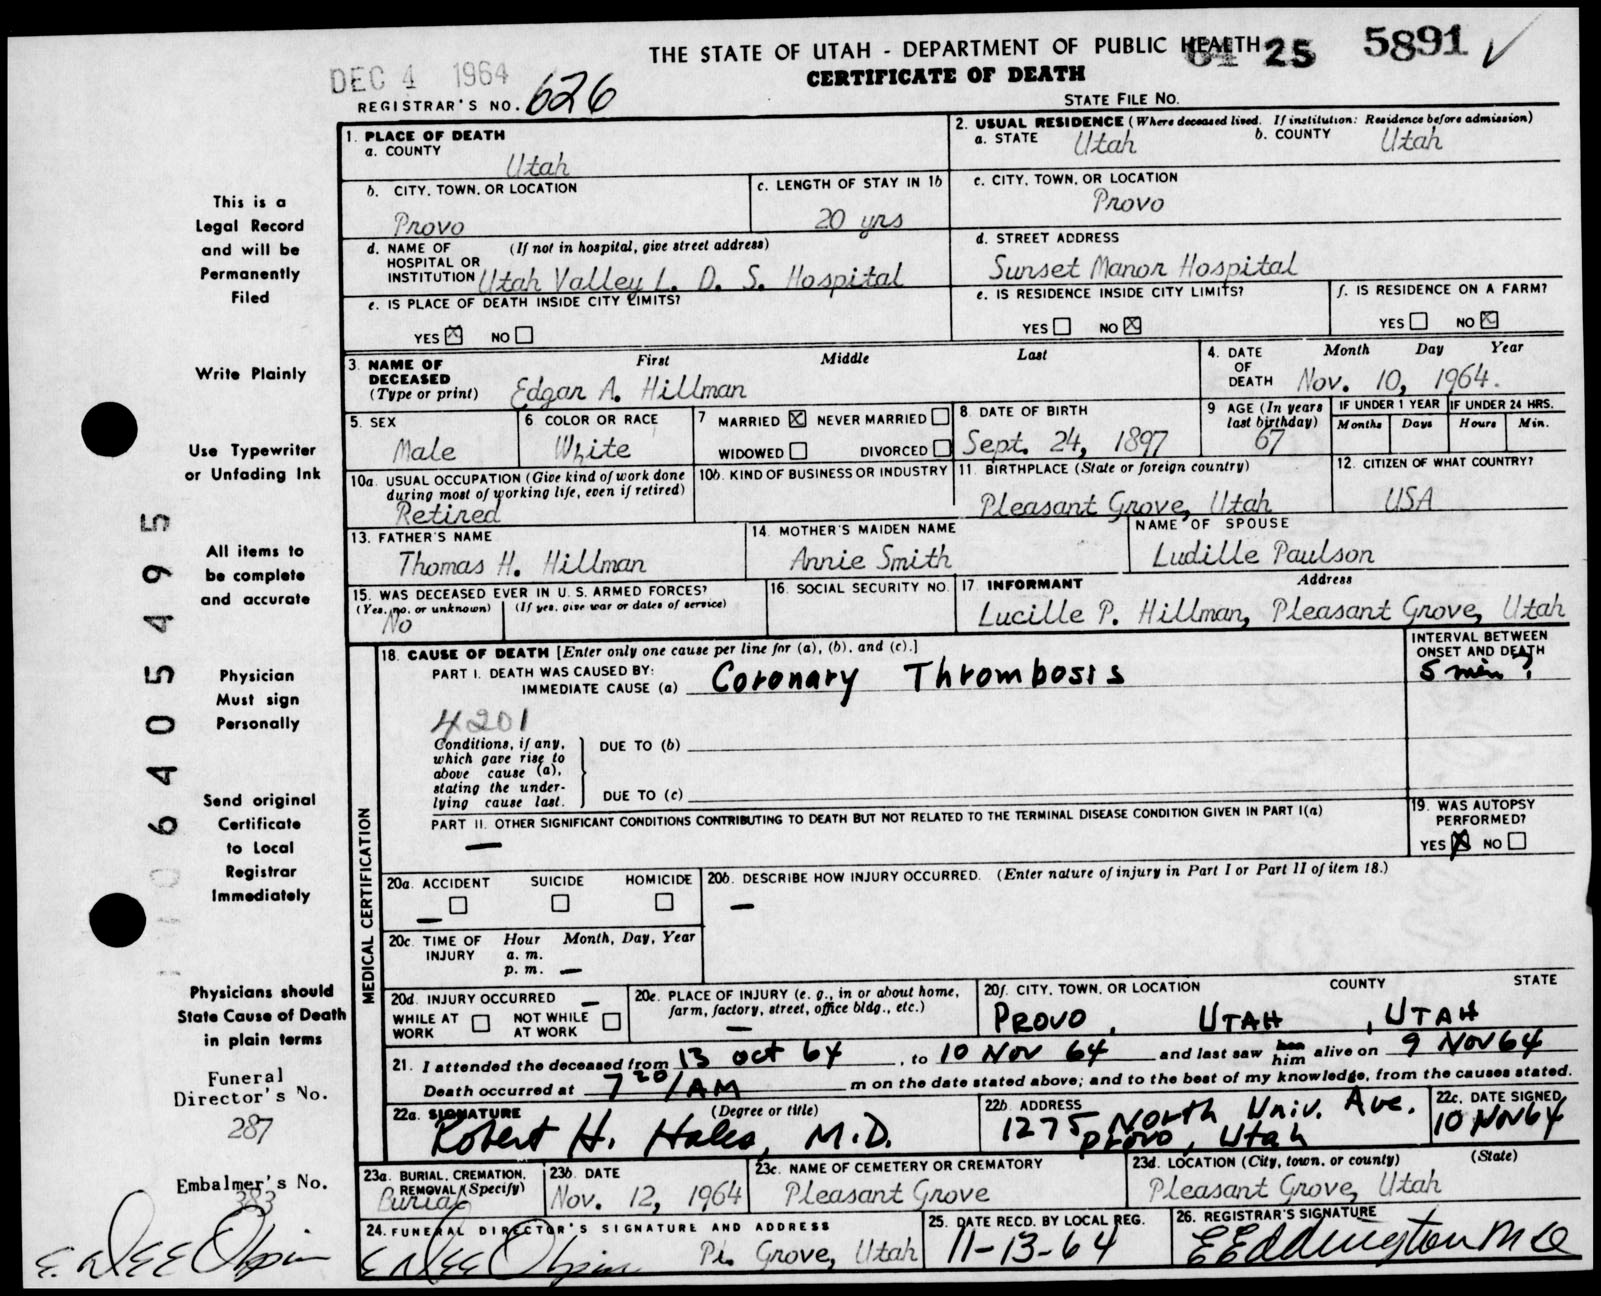 THE STATE OF UTAH - DEPARTMENT OF PUBLIC HEALTH 64 25 5891 ✓
CERTIFICATE OF DEATH
DEC 4 1964
REGISTRAR'S NO. 626
STATE FILE NO.
1. PLACE OF DEATH
a. COUNTY
Utah
2. USUAL RESIDENCE (Where deceased lived. If institution: Residence before admission)
a. STATE Utah b. COUNTY Utah
b. CITY, TOWN, OR LOCATION
Provo
c. LENGTH OF STAY IN 1b
20 yrs
c. CITY, TOWN, OR LOCATION
Provo
d. NAME OF HOSPITAL OR INSTITUTION (If not in hospital, give street address)
Utah Valley L. D. S. Hospital
d. STREET ADDRESS
Sunset Manor Hospital
e. IS PLACE OF DEATH INSIDE CITY LIMITS?
YES ☒ NO ☐
e. IS RESIDENCE INSIDE CITY LIMITS?
YES ☐ NO ☒
f. IS RESIDENCE ON A FARM?
YES ☐ NO ☒
3. NAME OF DECEASED (Type or print) First Middle Last
Edgar A. Hillman
4. DATE OF DEATH Month Day Year
Nov. 10, 1964.
5. SEX
Male
6. COLOR OR RACE
White
7 MARRIED ☒ NEVER MARRIED ☐
WIDOWED ☐ DIVORCED ☐
8. DATE OF BIRTH
Sept. 24, 1897
9 AGE (In years last birthday)
67
IF UNDER 1 YEAR IF UNDER 24 HRS.
Months Days Hours Min.
10a. USUAL OCCUPATION (Give kind of work done during most of working life, even if retired)
Retired
10b. KIND OF BUSINESS OR INDUSTRY
11. BIRTHPLACE (State or foreign country)
Pleasant Grove, Utah
12. CITIZEN OF WHAT COUNTRY?
USA
13. FATHER'S NAME
Thomas H. Hillman
14. MOTHER'S MAIDEN NAME
Annie Smith
NAME OF SPOUSE
Ludille Paulson
15. WAS DECEASED EVER IN U. S. ARMED FORCES?
(Yes, no, or unknown) (If yes, give war or dates of service)
No
16. SOCIAL SECURITY NO.
17. INFORMANT Address
Lucille P. Hillman, Pleasant Grove, Utah
18. CAUSE OF DEATH [Enter only one cause per line for (a), (b), and (c).]
INTERVAL BETWEEN ONSET AND DEATH
PART I. DEATH WAS CAUSED BY:
IMMEDIATE CAUSE (a) Coronary Thrombosis
5 min ?
4201
Conditions, if any, which gave rise to above cause (a), stating the underlying cause last.
DUE TO (b)
DUE TO (c)
PART II. OTHER SIGNIFICANT CONDITIONS CONTRIBUTING TO DEATH BUT NOT RELATED TO THE TERMINAL DISEASE CONDITION GIVEN IN PART I(a)
—
19. WAS AUTOPSY PERFORMED?
YES ☒ NO ☐
MEDICAL CERTIFICATION
20a. ACCIDENT SUICIDE HOMICIDE
— ☐ ☐ ☐
20b. DESCRIBE HOW INJURY OCCURRED. (Enter nature of injury in Part I or Part II of item 18.)
—
20c. TIME OF INJURY Hour Month, Day, Year
a. m.
p. m. —
20d. INJURY OCCURRED —
WHILE AT WORK ☐ NOT WHILE AT WORK ☐
20e. PLACE OF INJURY (e. g., in or about home, farm, factory, street, office bldg., etc.)
—
20f. CITY, TOWN, OR LOCATION COUNTY STATE
PROVO, UTAH, UTAH
21. I attended the deceased from 13 Oct 64, to 10 Nov 64 and last saw her him alive on 9 Nov 64
Death occurred at 7 20/AM m on the date stated above; and to the best of my knowledge, from the causes stated.
22a. SIGNATURE (Degree or title)
Robert H. Hales, M.D.
22b. ADDRESS
1275 North Univ. Ave.
Provo, Utah
22c. DATE SIGNED
10 Nov 64
23a. BURIAL, CREMATION, REMOVAL (Specify)
Burial
23b. DATE
Nov. 12, 1964
23c. NAME OF CEMETERY OR CREMATORY
Pleasant Grove
23d. LOCATION (City, town, or county) (State)
Pleasant Grove, Utah
24. FUNERAL DIRECTOR'S SIGNATURE AND ADDRESS
Pl. Grove, Utah
25. DATE RECD. BY LOCAL REG.
11-13-64
26. REGISTRAR'S SIGNATURE
E E Eddington MD
This is a
Legal Record
and will be
Permanently
Filed
Write Plainly
Use Typewriter
or Unfading Ink
All items to
be complete
and accurate
Physician
Must sign
Personally
Send original
Certificate
to Local
Registrar
Immediately
Physicians should
State Cause of Death
in plain terms
Funeral
Director's No.
287
Embalmer's No.
383
0 6 4 0 5 5 4 9 5